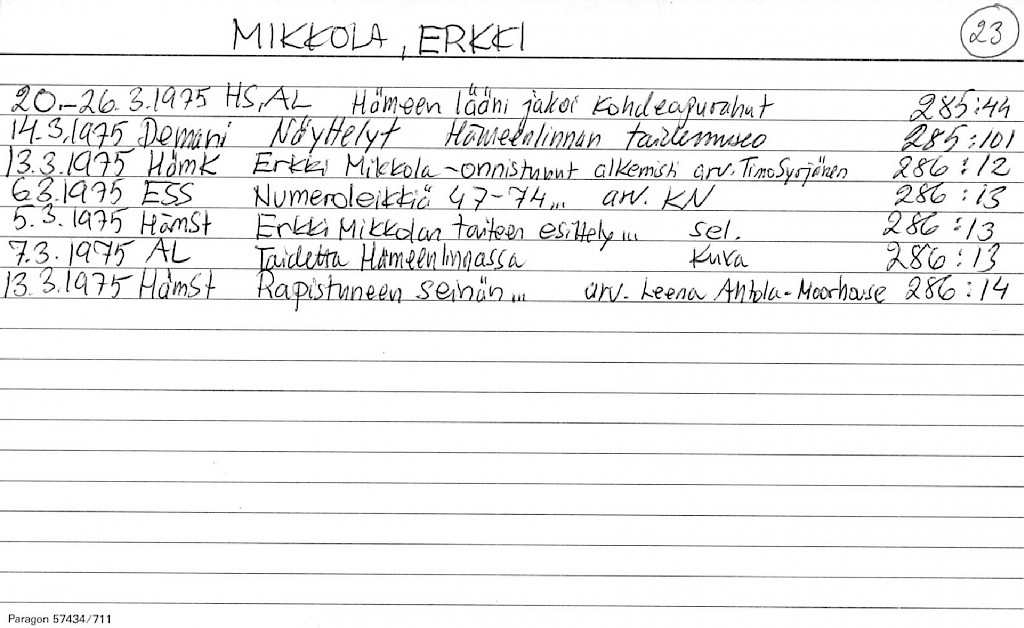 MIKKOLA, ERKKI
23
20.-26.3.1975 HS, AL Hämeen lääni jakoi kohdeapurahat 285:44
14.3.1975 Demari Näyttelyt Hämeenlinnan taidemuseo 285:101
13.3.1975 HämK Erkki Mikkola - onnistunut alkemisti arv. Timo Syrjänen 286:12
6.3.1975 ESS Numeroleikkiä 47-74... arv. KN 286:13
5.3.1975 HämSt Erkki Mikkolan taiteen esittely... sel. 286:13
7.3.1975 AL Taidetta Hämeenlinnassa kuva 286:13
13.3.1975 HämSt Rapistuneen seinän... arv. Leena Ahtola-Moorhouse 286:14
Paragon 57434/711